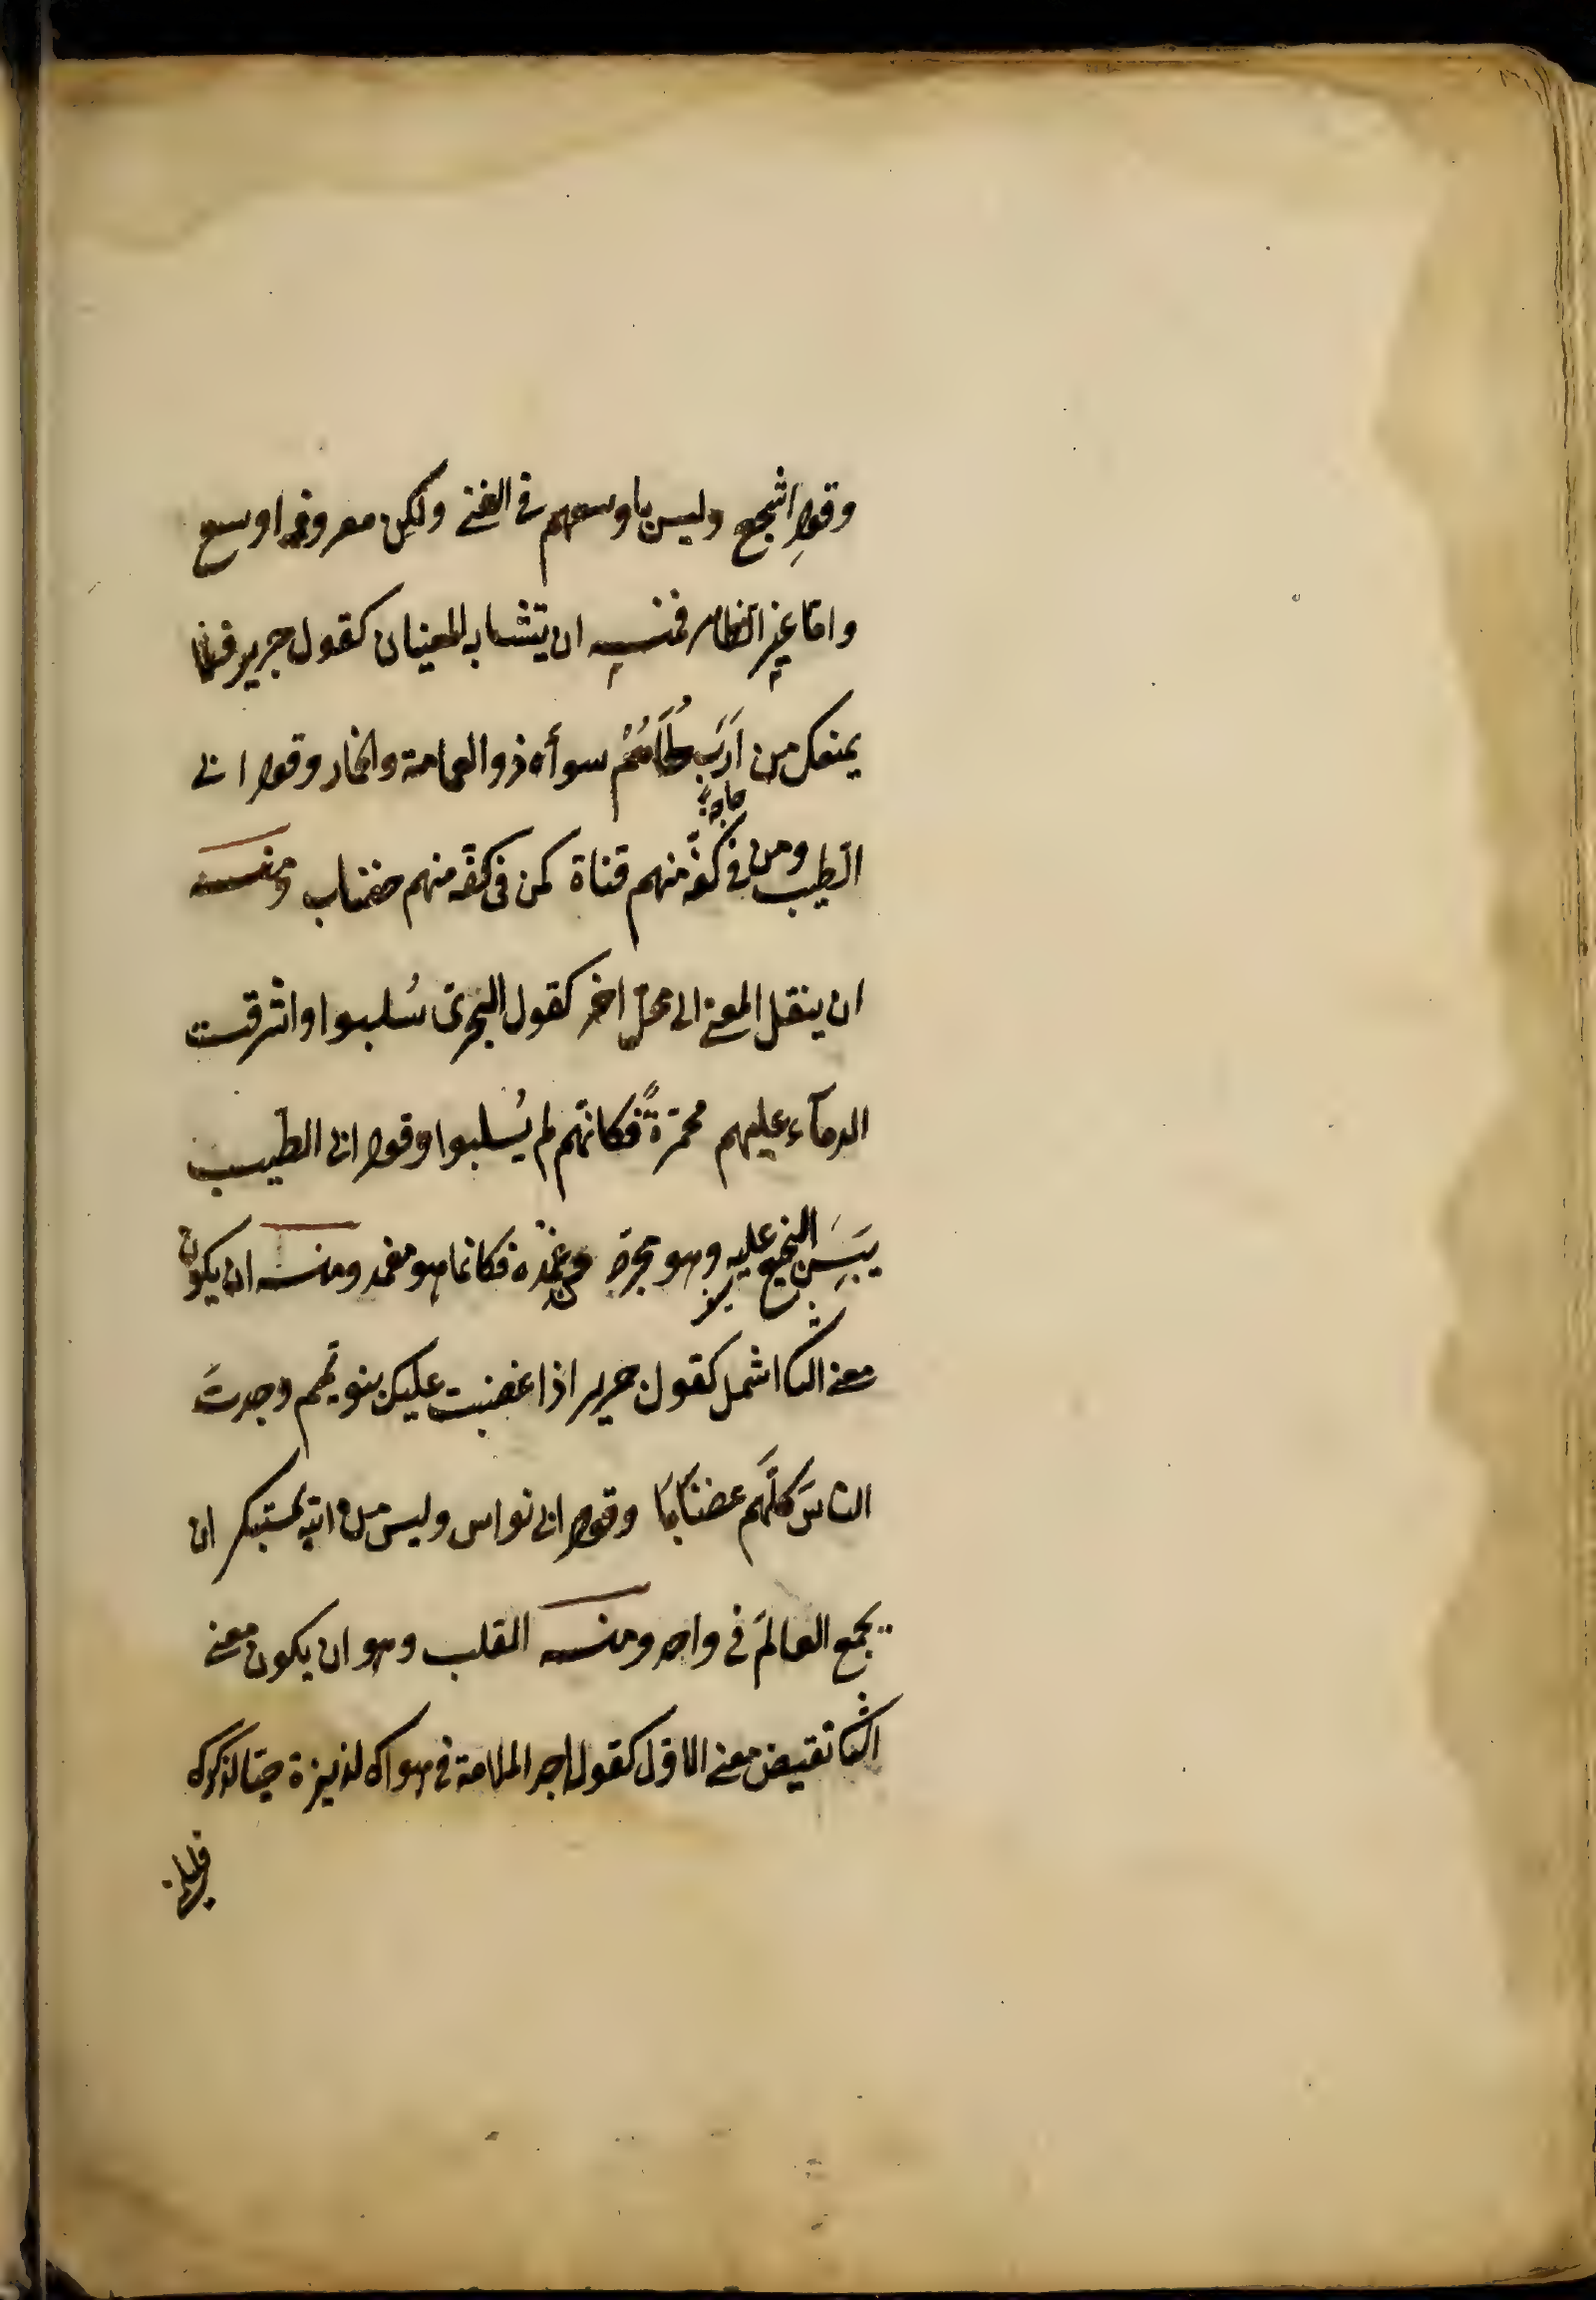 وقول اشجع وليس باوسعهم في الغنى ولكن معروفه اوسع
واما غير الظاهر فمنه ان يتشابه المعنيان كقول جرير فلا
يمنعك من اَرَبٍ لُحَاهُم سوأه ذو العمامة والخمار وقول ابى
الطيب ومن في كفّه منهم قناة كمن فى كفّه منهم خضاب ومنه
ان ينقل المعنى الى محلّ اخر كقول البحترى سُلبوا واشرقت
الدمآء عليهم محمرّةً فكانّهم لم يُسلبوا وقول ابى الطيب
يَبِسَ النجيع عليه وهو مجرّد عن غمده فكانما هو مغمد ومنه ان يكون
معنى الثانى اشمل كقول جرير اذا غضبت عليك بنو تميم وجدتَ
الناسَ كلَّهم غضابًا وقول ابى نواس وليس من الله بمستنكر ان
يجمع العالمَ فى واحد ومنه القلب وهو ان يكون معنى
الثانى نقيض معنى الاوّل كقول اجد الملامة فى هواك لذيذة حبّا لذكرك
فليلمنى